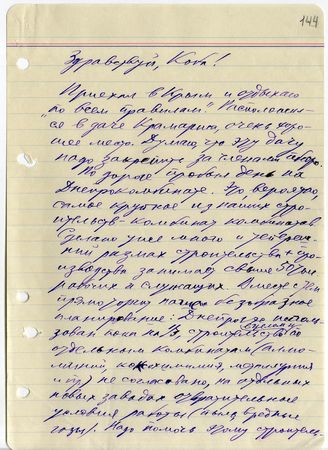 144
Здравствуй, Коба!
Приехал в Крым и отдыхаю
"по всем правилам". Расположил-
ся в даче Крамарки, очень хоро-
шее место. Думаю, что эту дачу
надо закрепить за членами бюро.
По дороге провел день на
Днепрокомбинате. Это вероятно,
самое крупное из наших стро-
ительств - комбинат комбинатов.
Сделано уже много и теперь
размах строительства + про-
изводства занимает свыше 50 тыс
рабочих и служащих. Вместе с тем
прямо безобразное
планирование: Днепрогэс исполь-
зован пока на 1/5, строительство
отдельным комбинатам (алюми-
ниевый, коксохимия, металлургия
и пр) не согласовано, на отдельных
новых заводах отвратительные
условия работы (пыль, вредные
газы). Надо помочь этому строитель-